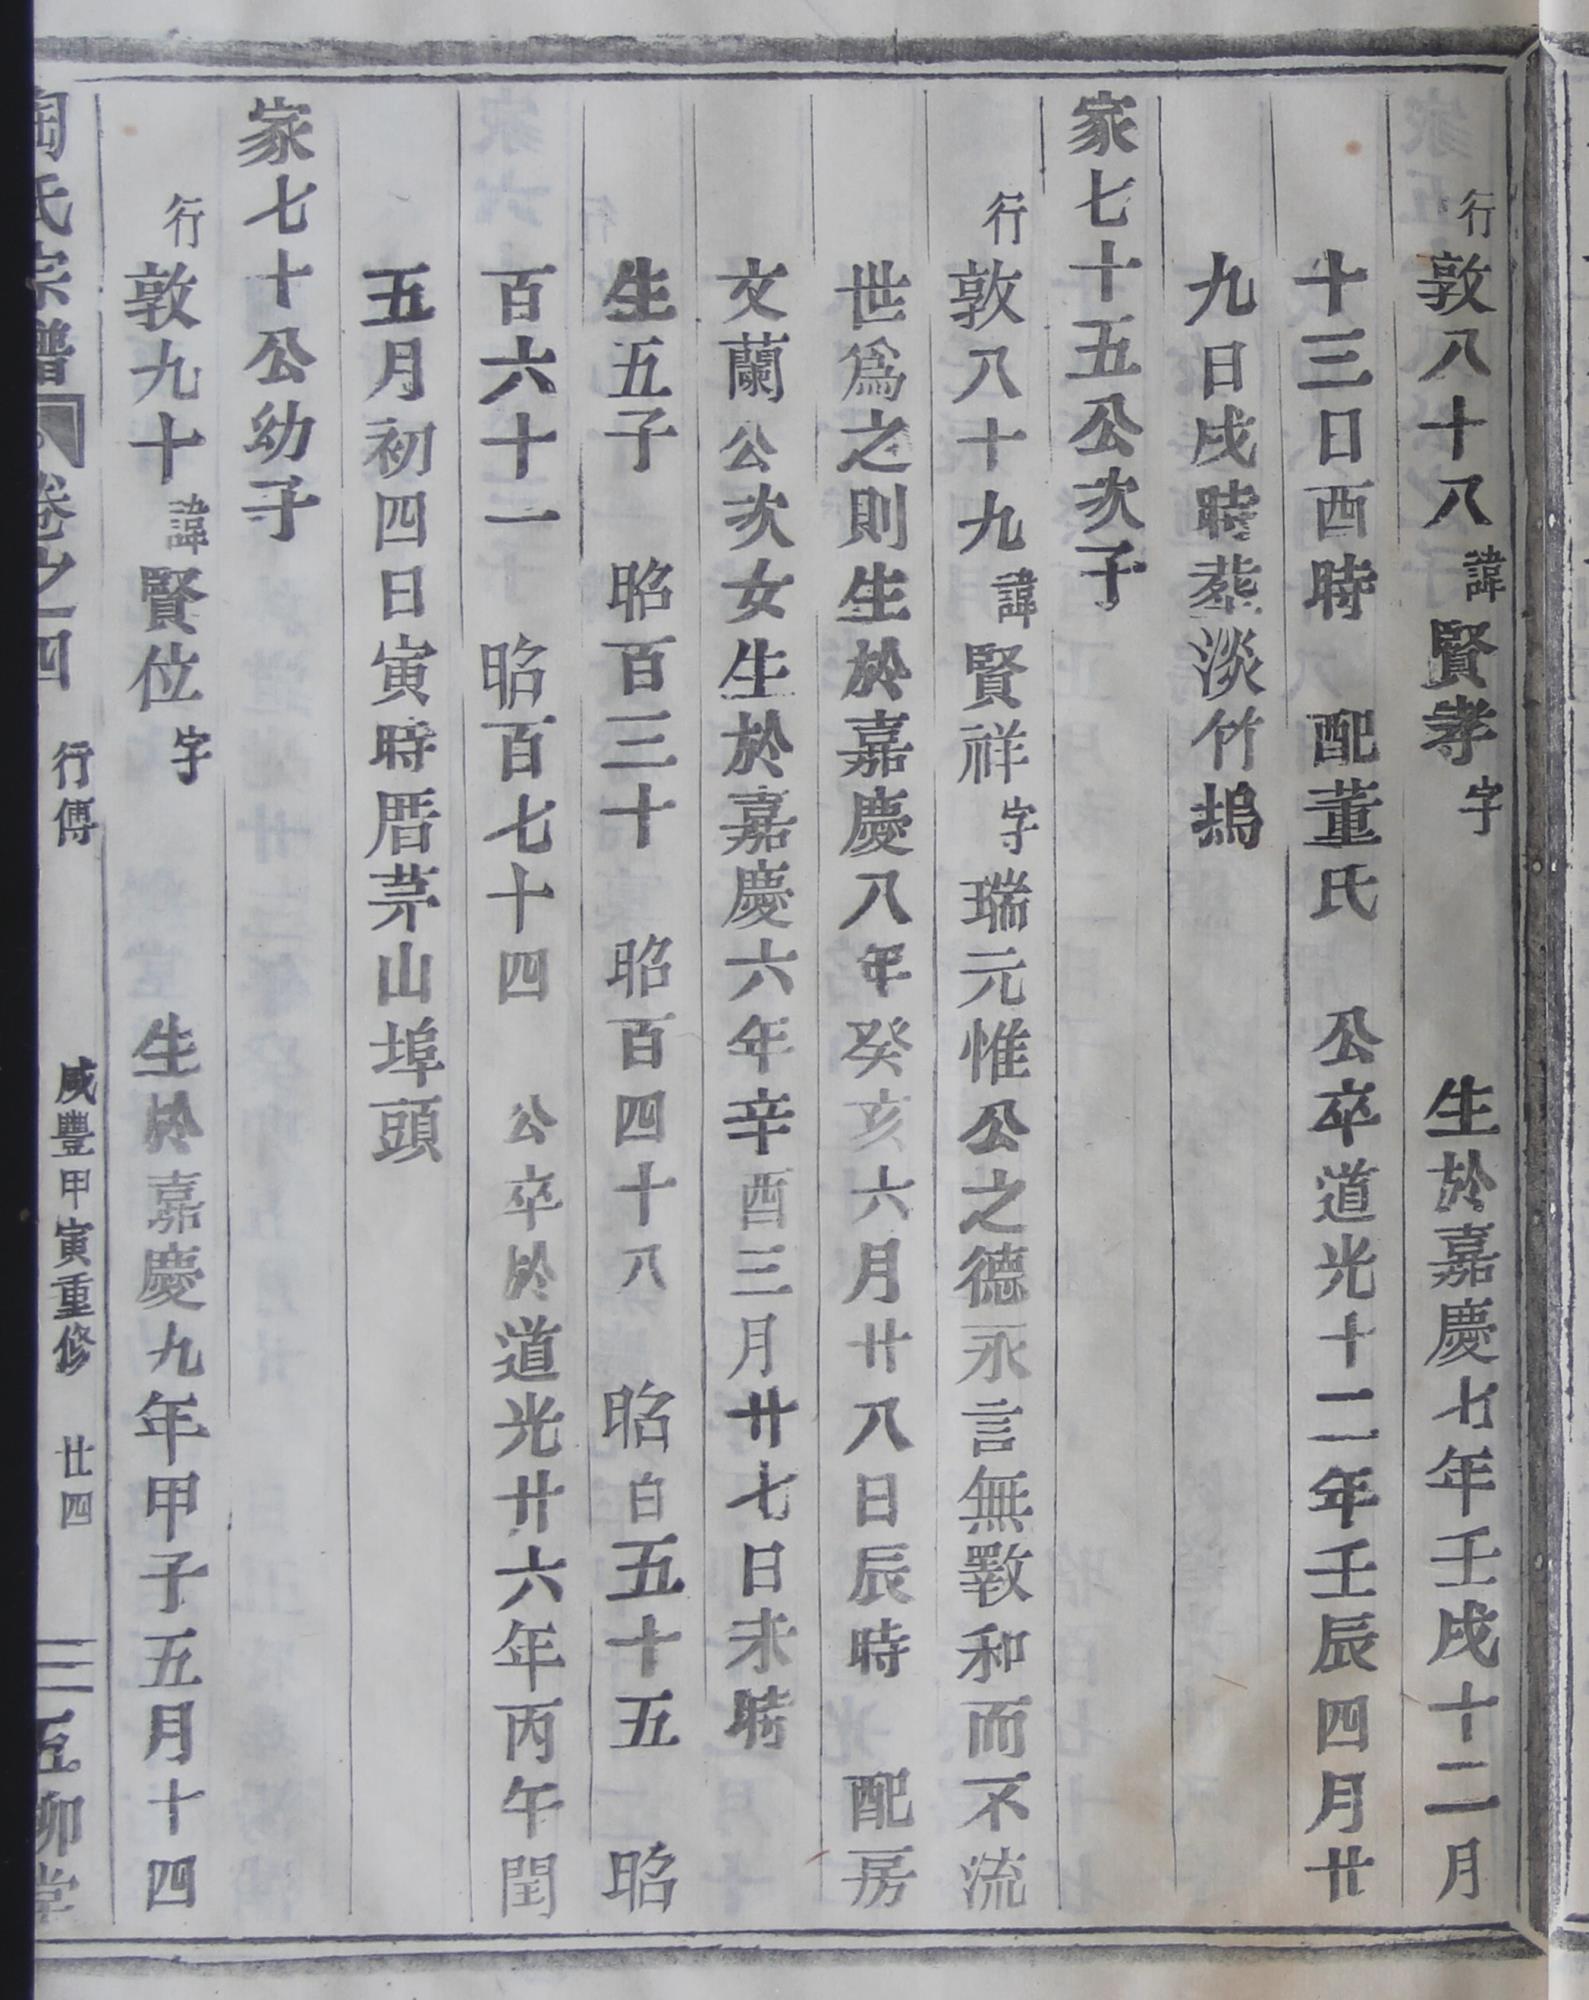 行敦八十八諱賢孝字 生於嘉慶七年壬戌十二月
十三日酉時 配董氏 公卒道光十二年壬辰四月廿
九日戌時葬淡竹塢
家七十五公次子
行敦八十九諱賢祥字瑞元惟公之德永言無斁和而不流
世爲之則生於嘉慶八年癸亥六月廿八日辰時 配房
文蘭公次女生於嘉慶六年辛酉三月廿七日未時
生五子 昭百三十 昭百四十八 昭百五十五 昭
百六十一 昭百七十四 公卒於道光廿六年丙午閏
五月初四日寅時厝茅山埠頭
家七十公幼子
行敦九十諱賢位字 生於嘉慶九年甲子五月十四
陶氏宗譜 卷之四 行傅 咸豐甲寅重修 廿四 五柳堂